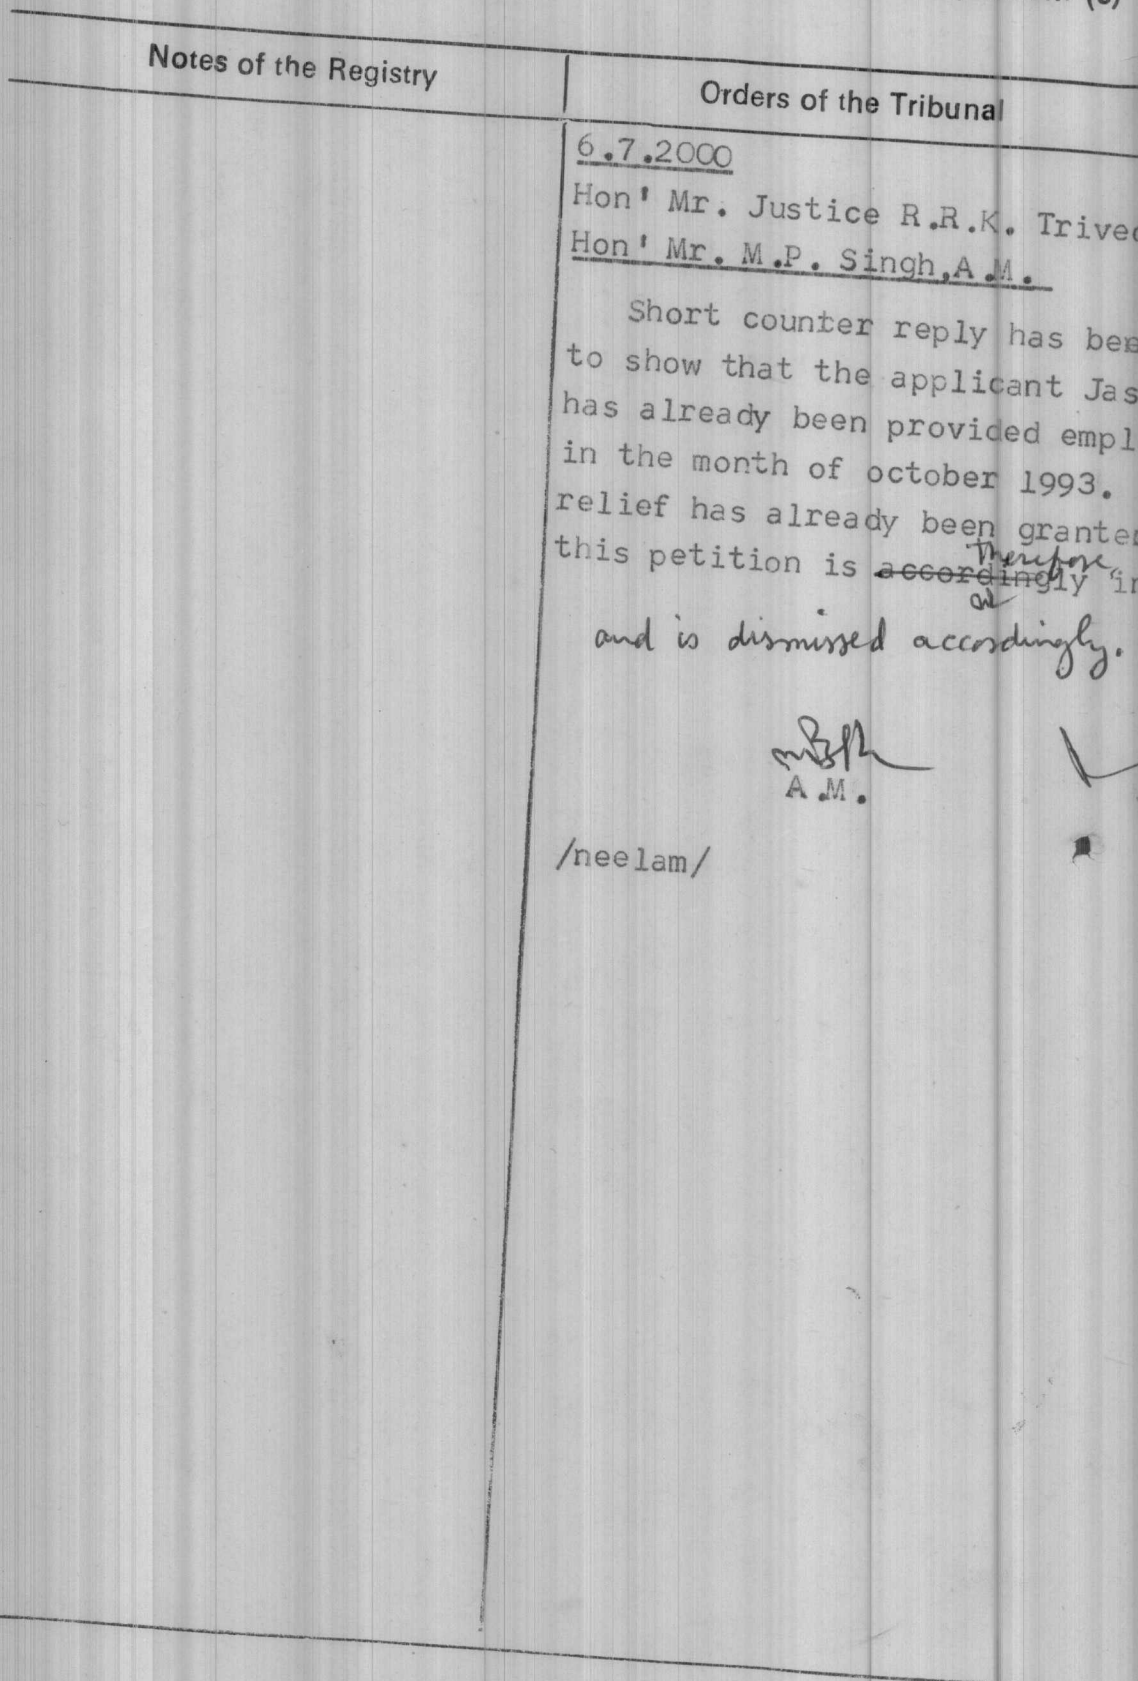 Notes of the Registry
Orders of the Tribunal
6.7.2000
Hon' Mr. Justice R.R.K. Trived
Hon' Mr. M.P. Singh,A.M.
Short counter reply has bee
to show that the applicant Jas
has already been provided empl
in the month of october 1993.
relief has already been grante
therefore
this petition is accordingly in
and is dismissed accordingly.
A.M.
/neelam/